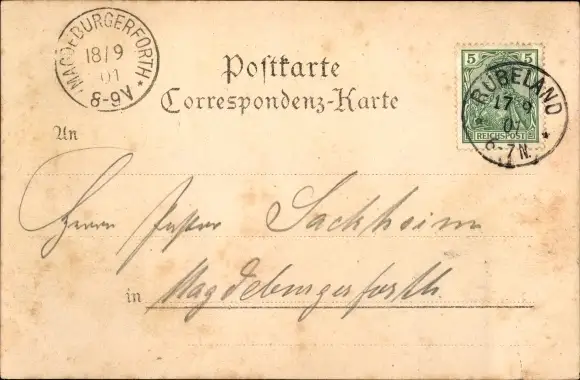 MAGDEBURGERFORTH
18/9
01
8-9V
Postkarte
Correspondenz-Karte
An
5 5
REICHSPOST
RÜBELAND
17 9
01
6-7N.
Herrn Pastor Sackheim
in Magdeburgerforth.